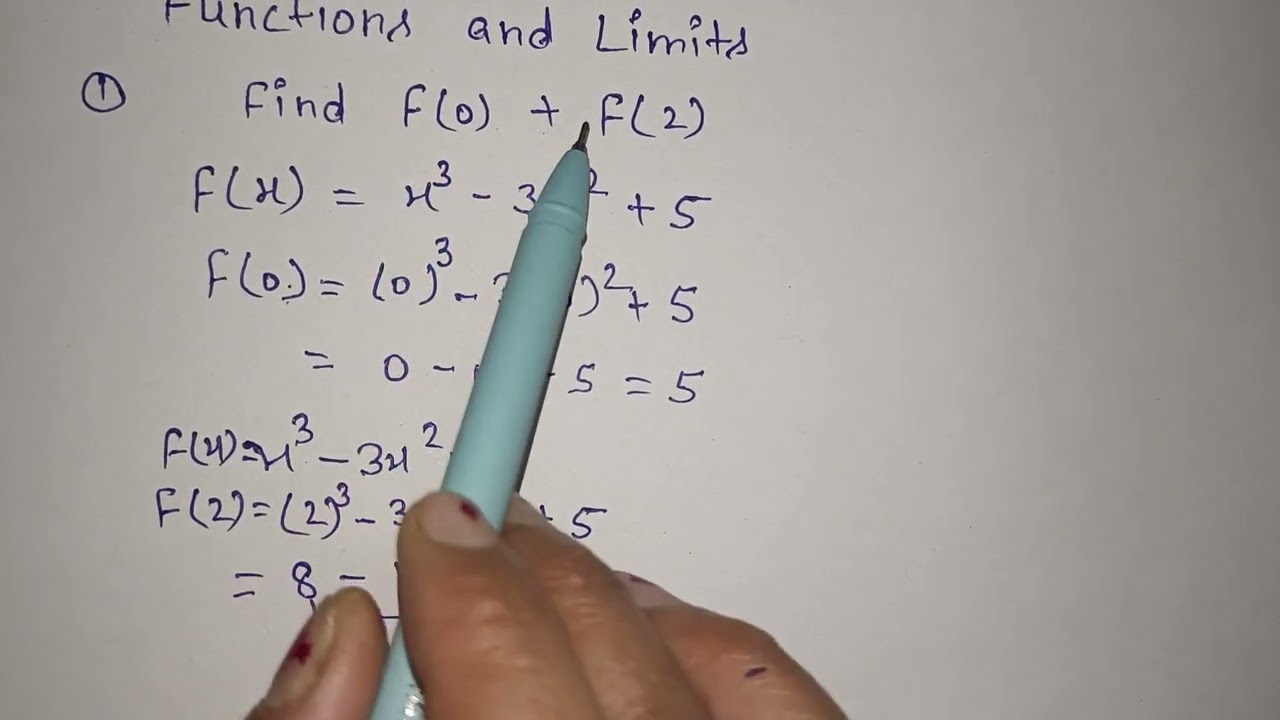 Functions and Limits
① Find F(0) + F(2)
F(x) = x³ - 3 ² + 5
F(0) = (0)³ - )² + 5
= 0 - 5 = 5
F(x) = x³ - 3x²
F(2) = (2)³ - 3 + 5
= 8 -